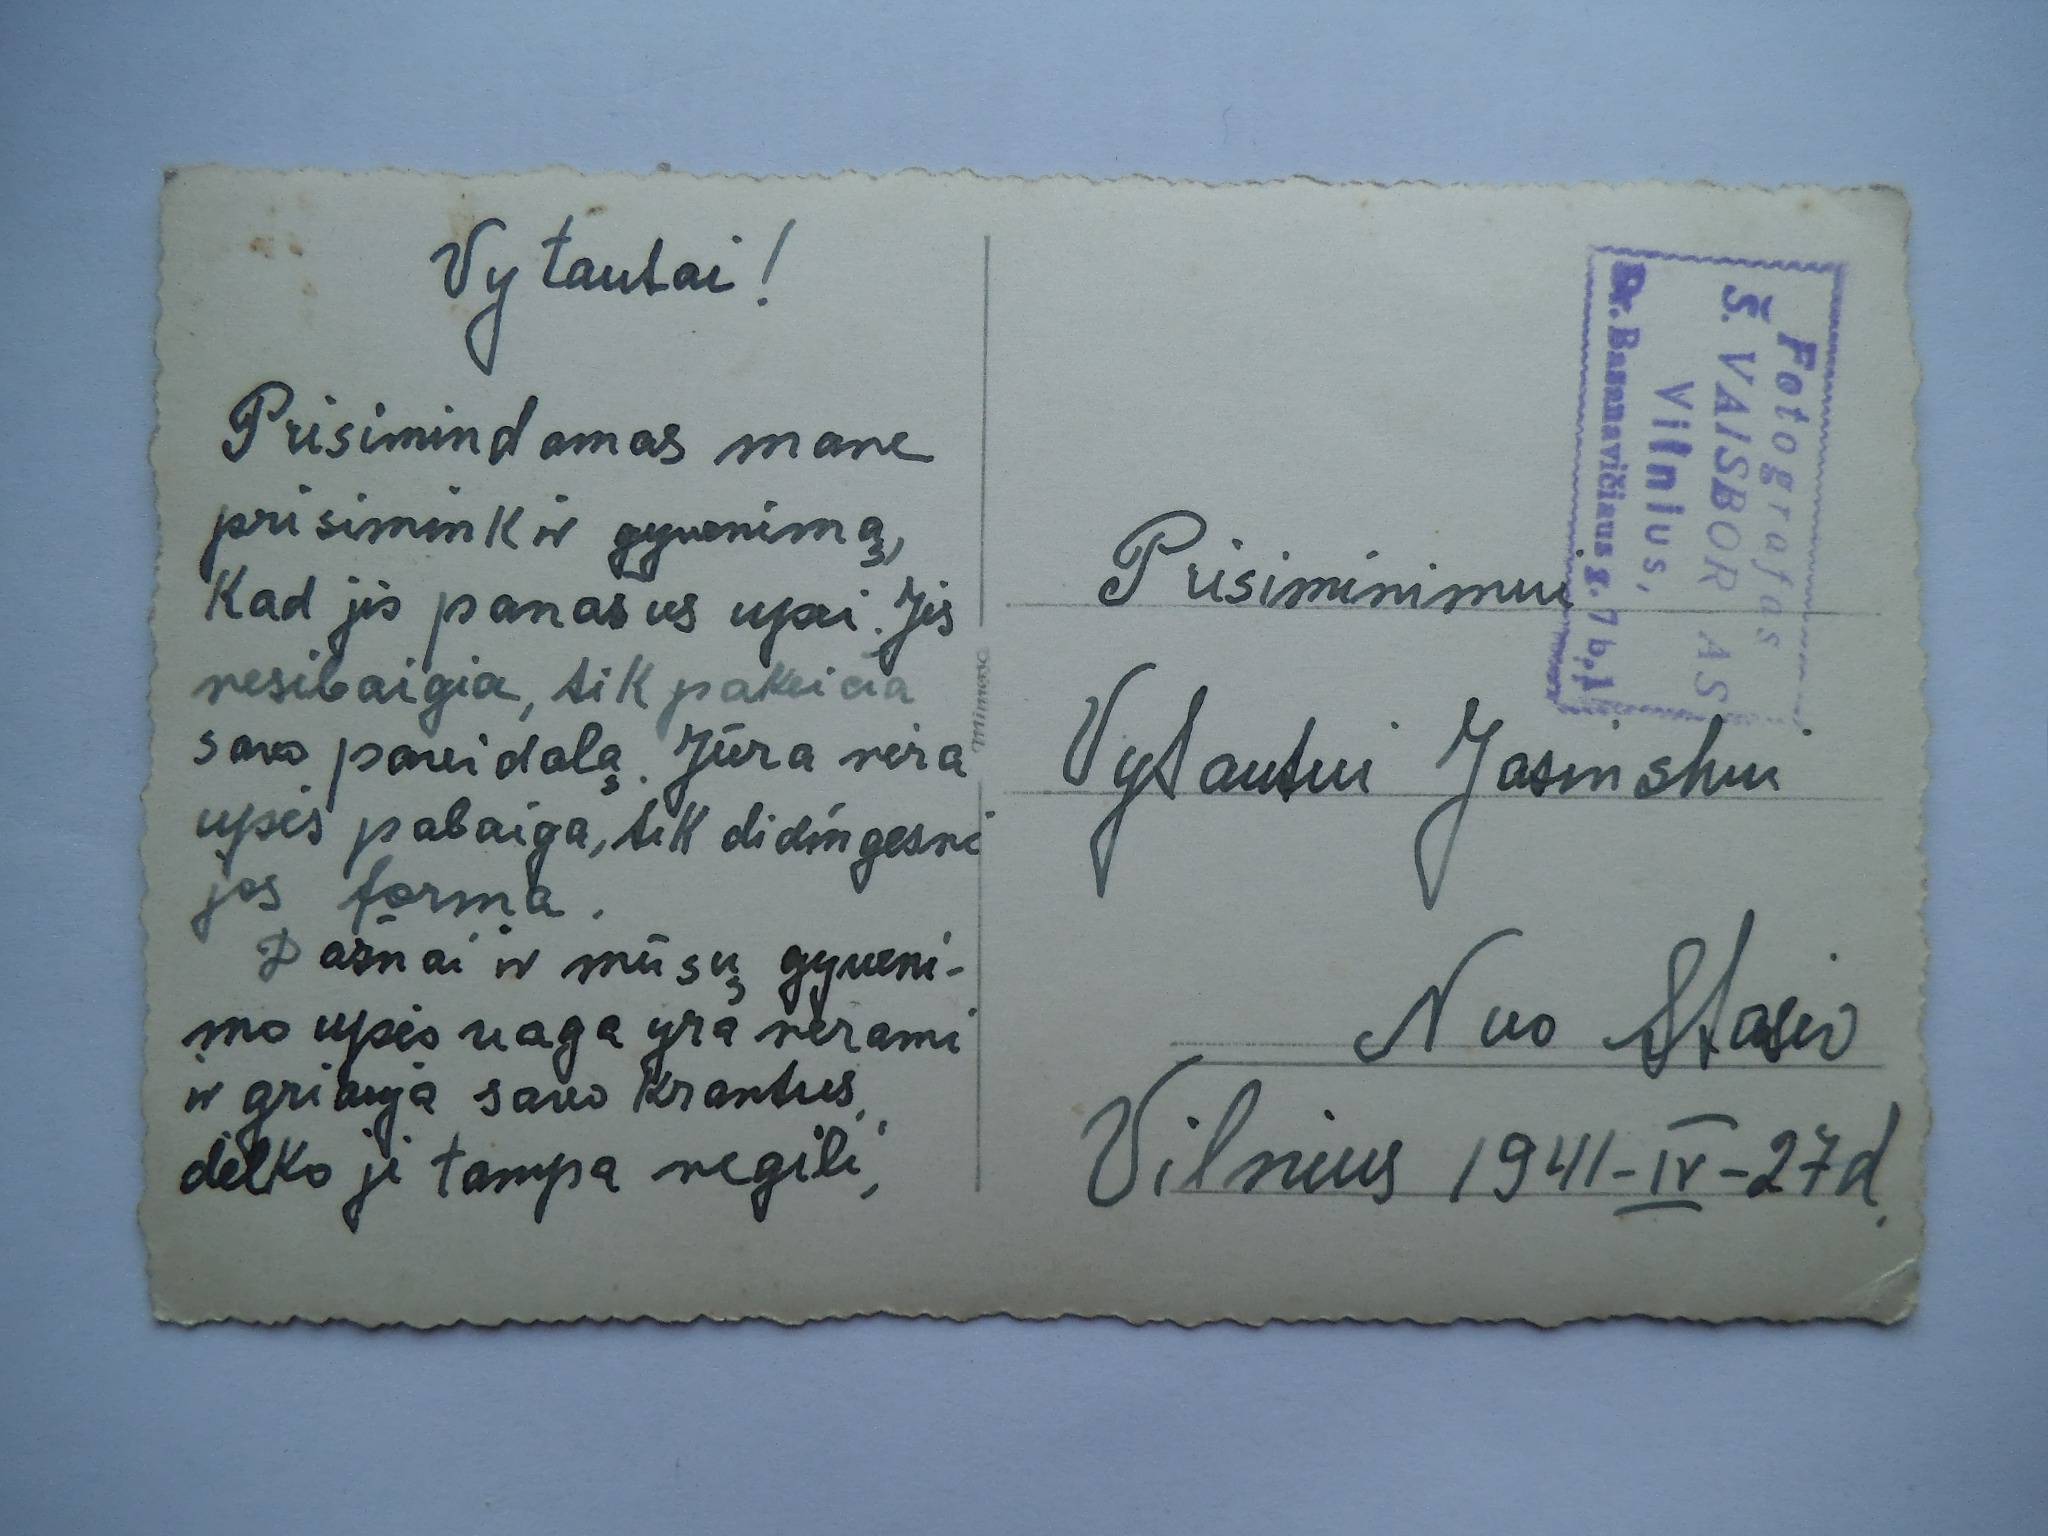 Vytautai!
Prisimindamas mane
prisimink ir gyvenimą,
Kad jis panašus upei. Jis
nesibaigia, tik pakeičia
savo paveidalą. Jūra nėra
upės pabaiga, tik didingesnė
jos forma.
Dažnai ir mūsų gyveni-
mo upės vaga yra nerami
ir griauja savo krantus,
dėlko ji tampa negili,
Mimosa
Fotografas
Š. VAISBORAS
Vilnius,
Dr. Basanavičiaus g. 7b,1
Prisiminimui
Vytautui Jasinskui
Nuo Stasio
Vilnius 1941-IV-27d.